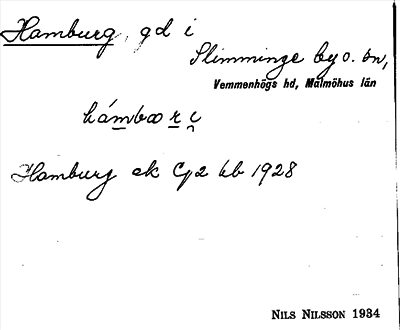 Hamburg, gd i
Slimminge by o. sn,
Vemmenhögs hd, Malmöhus län
Hamburg ek C72 bb 1928
NILS NILSSON 1934